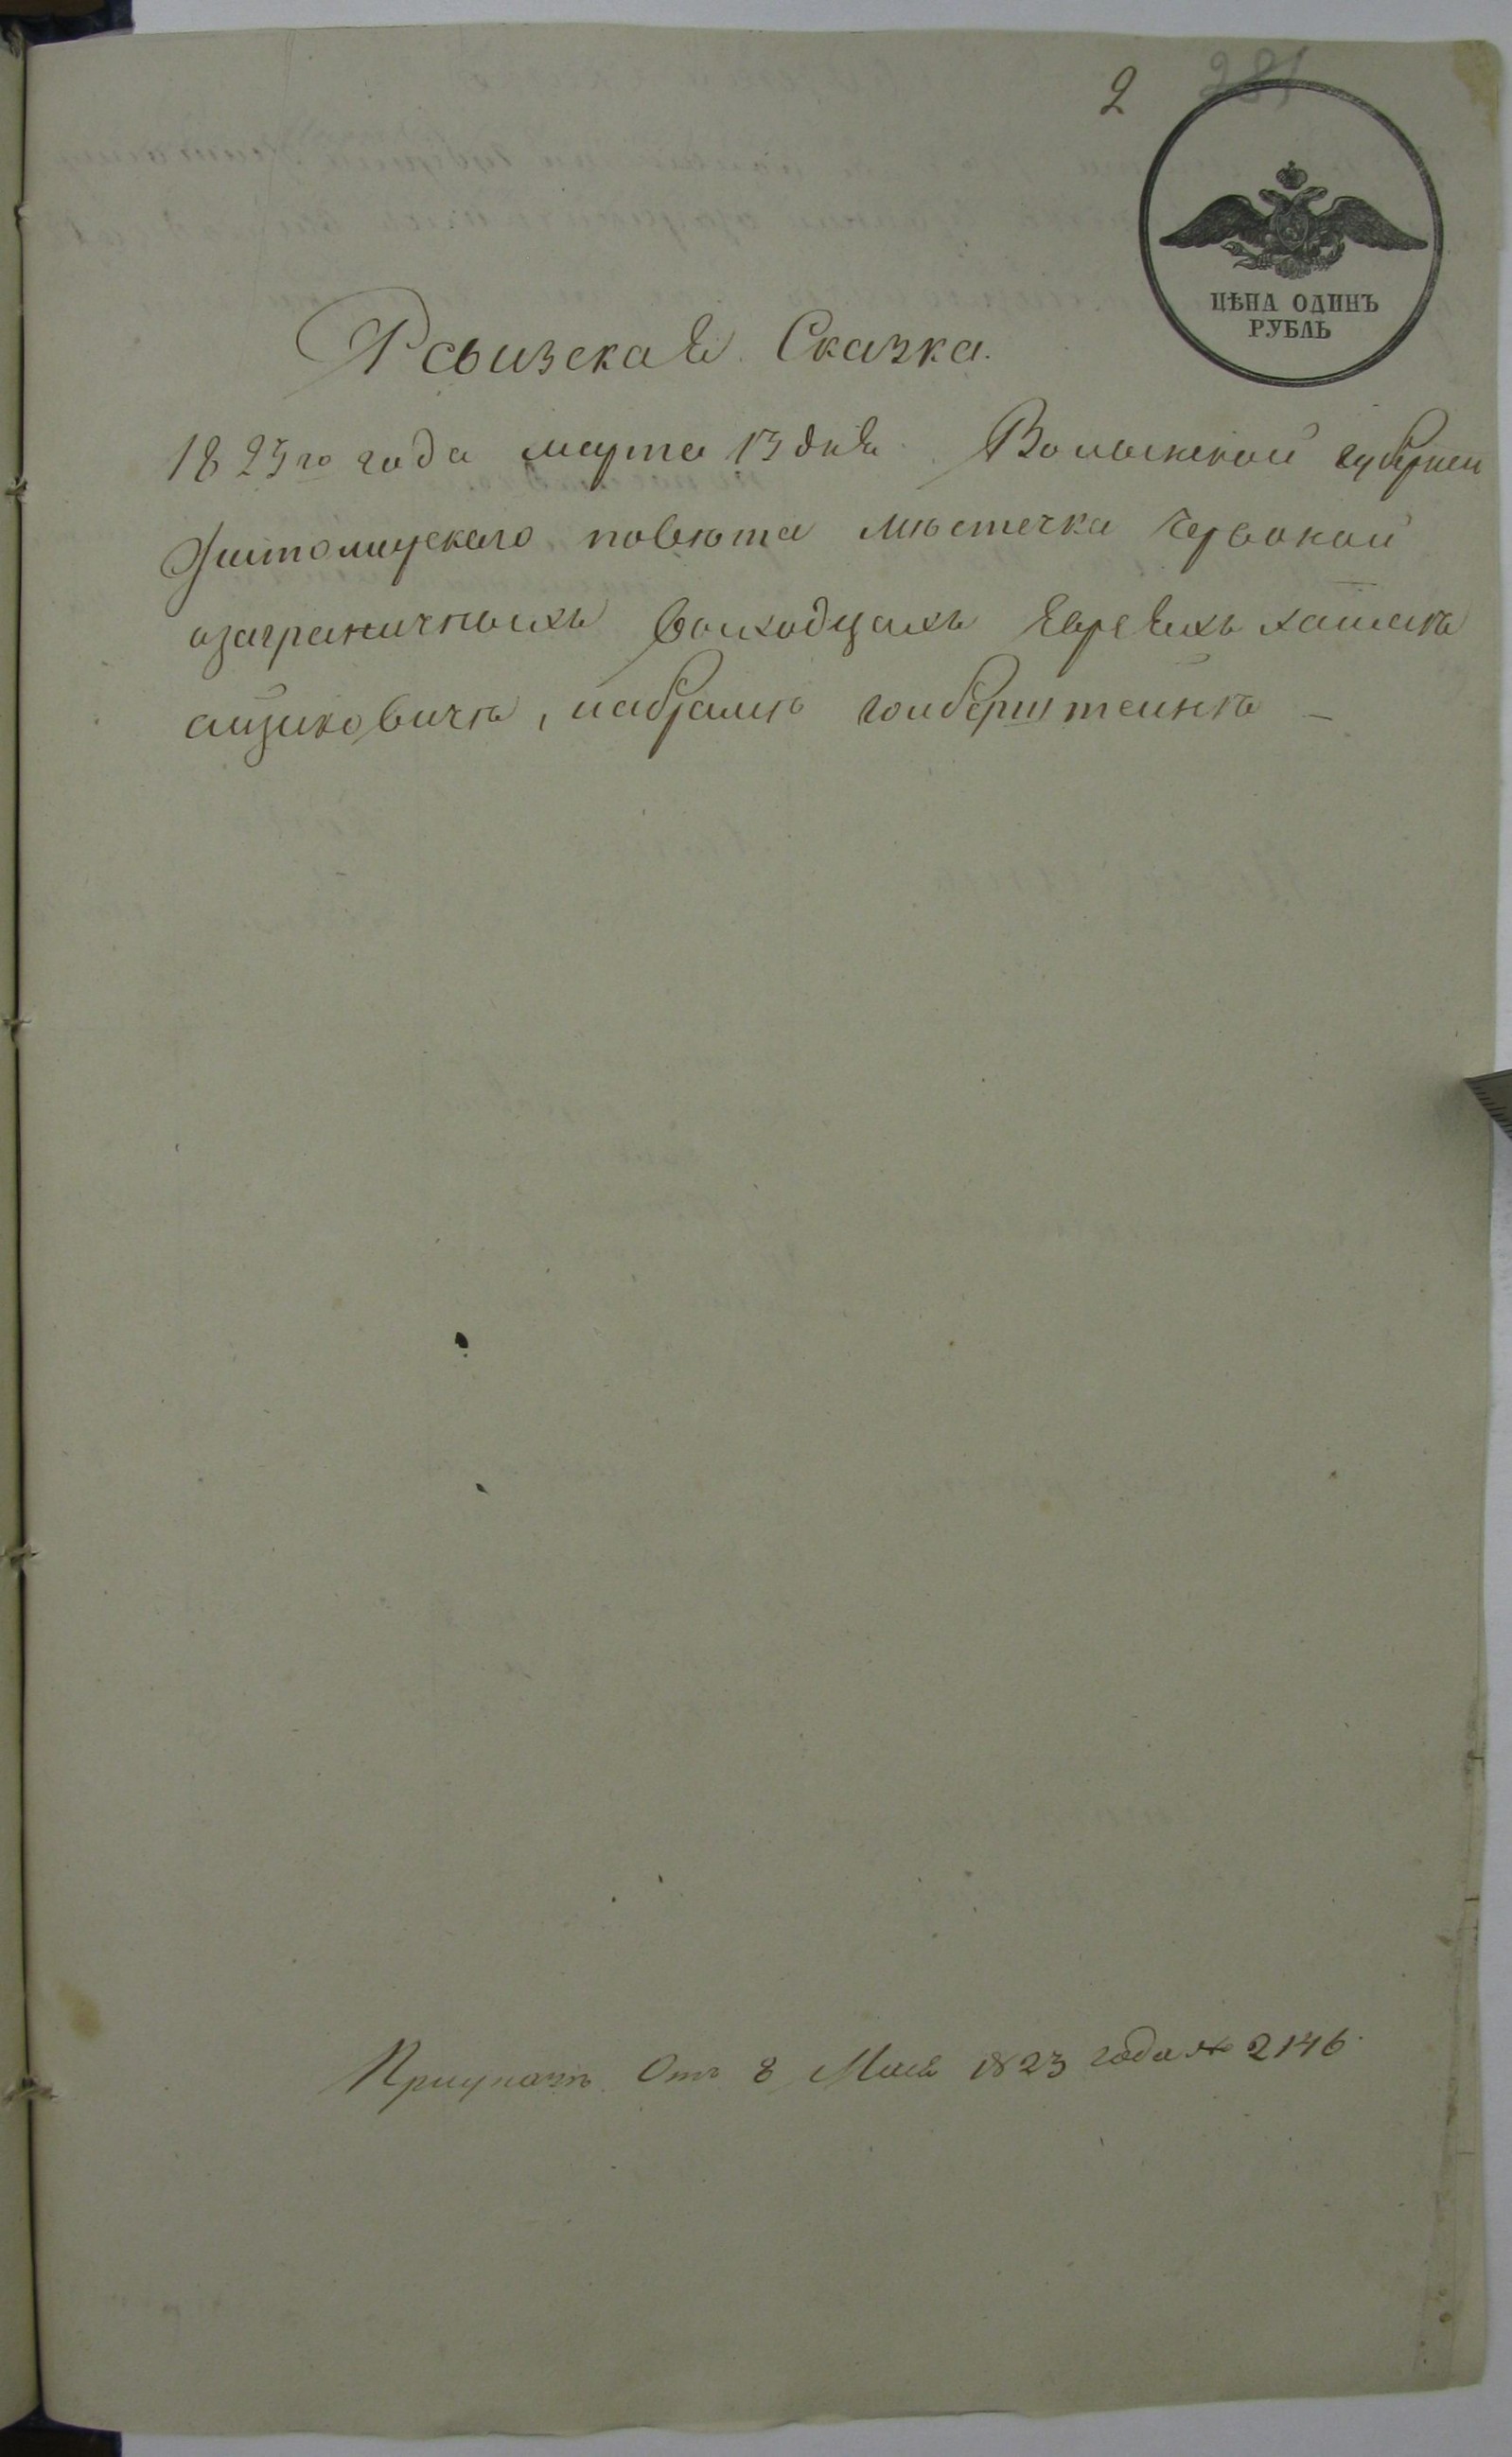 2 281
ЦѢНА ОДИНЪ
РУБЛЬ
Ревизская Сказка.
1823го года марта 13 дня Волынской губернии
Житомирского повѣта мѣстечка Червоной
озаграничныхъ выходцахъ Евреяхъ хаимѣ
аизиковичѣ, иабрамѣ голберштейнѣ –
При указѣ Отъ 8 Мая 1823 года № 2146